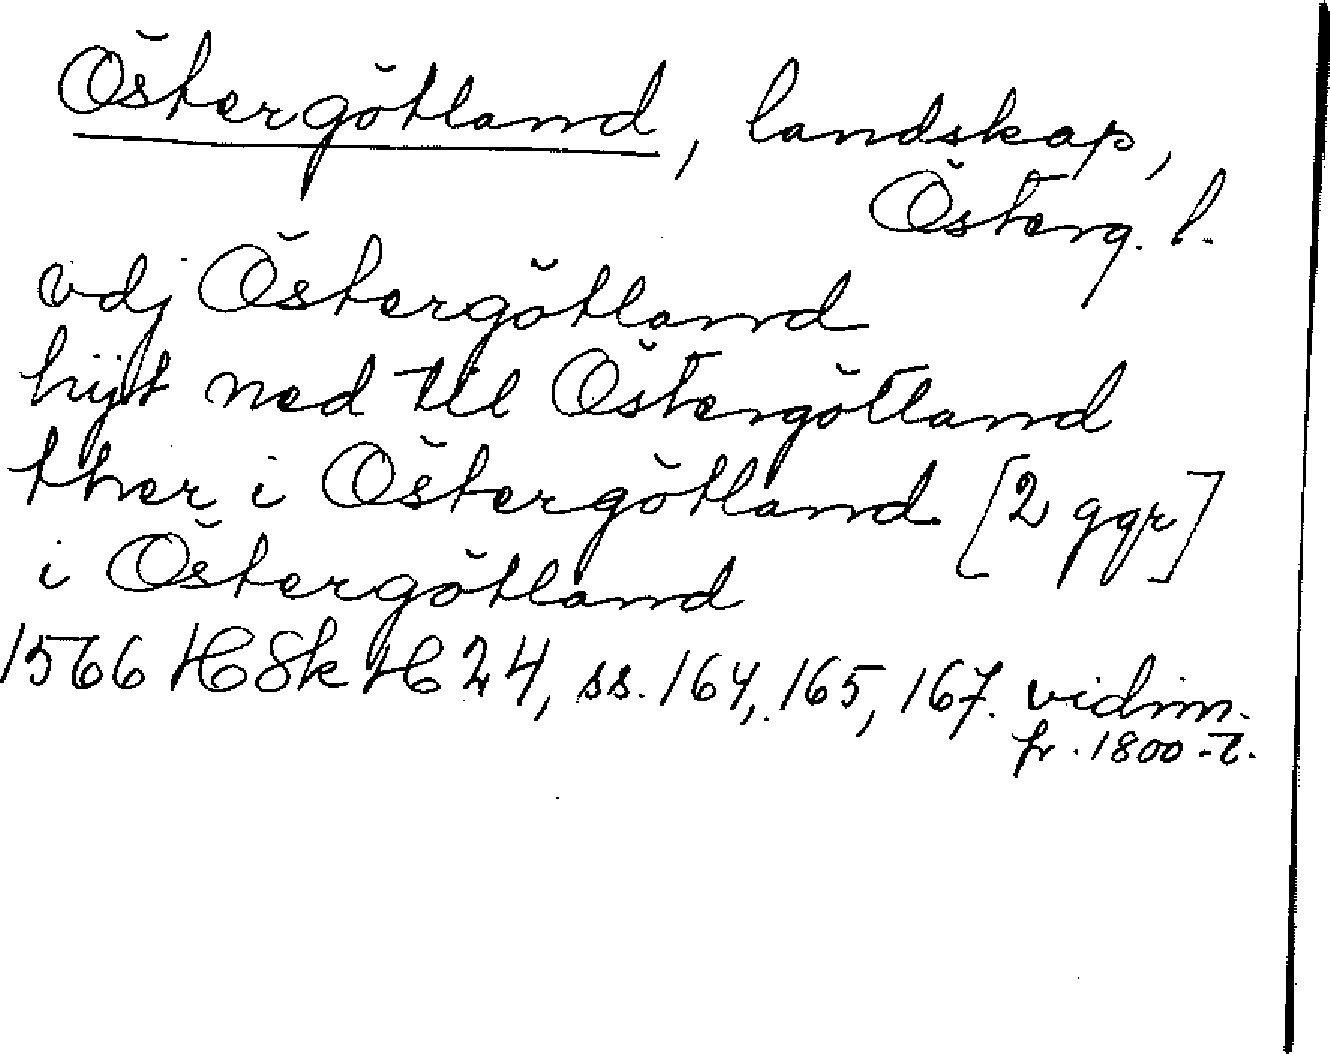 Östergötland, landskap,
Österg. l.
vdj Östergötland
hijt ned til Östergötland
ther i Östergötland [2 ggr]
i Östergötland
1566 HSk H 24, ss. 164, 165, 167. vidim.
fr. 1800-t.